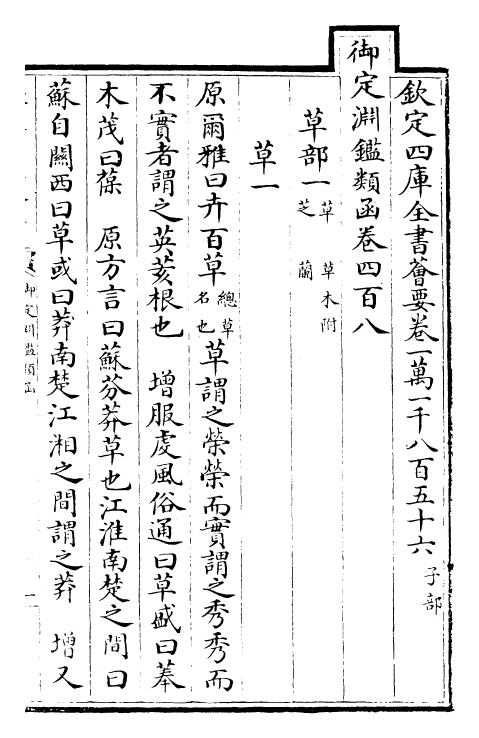 欽定四庫全書薈要卷一萬一千八百五十六 子部
御定淵鑑類函卷四百八
草部一 草 草木附
芝 蘭
草一
原爾雅曰卉百草總草名也草謂之榮榮而實謂之秀秀而
不實者謂之英荄根也 增服虔風俗通曰草盛曰菶
木茂曰葆 原方言曰蘇芬莽草也江淮南楚之間曰
蘇自關西曰草或曰莽南楚江湘之間謂之莽 增又
御定淵鑑類函
一